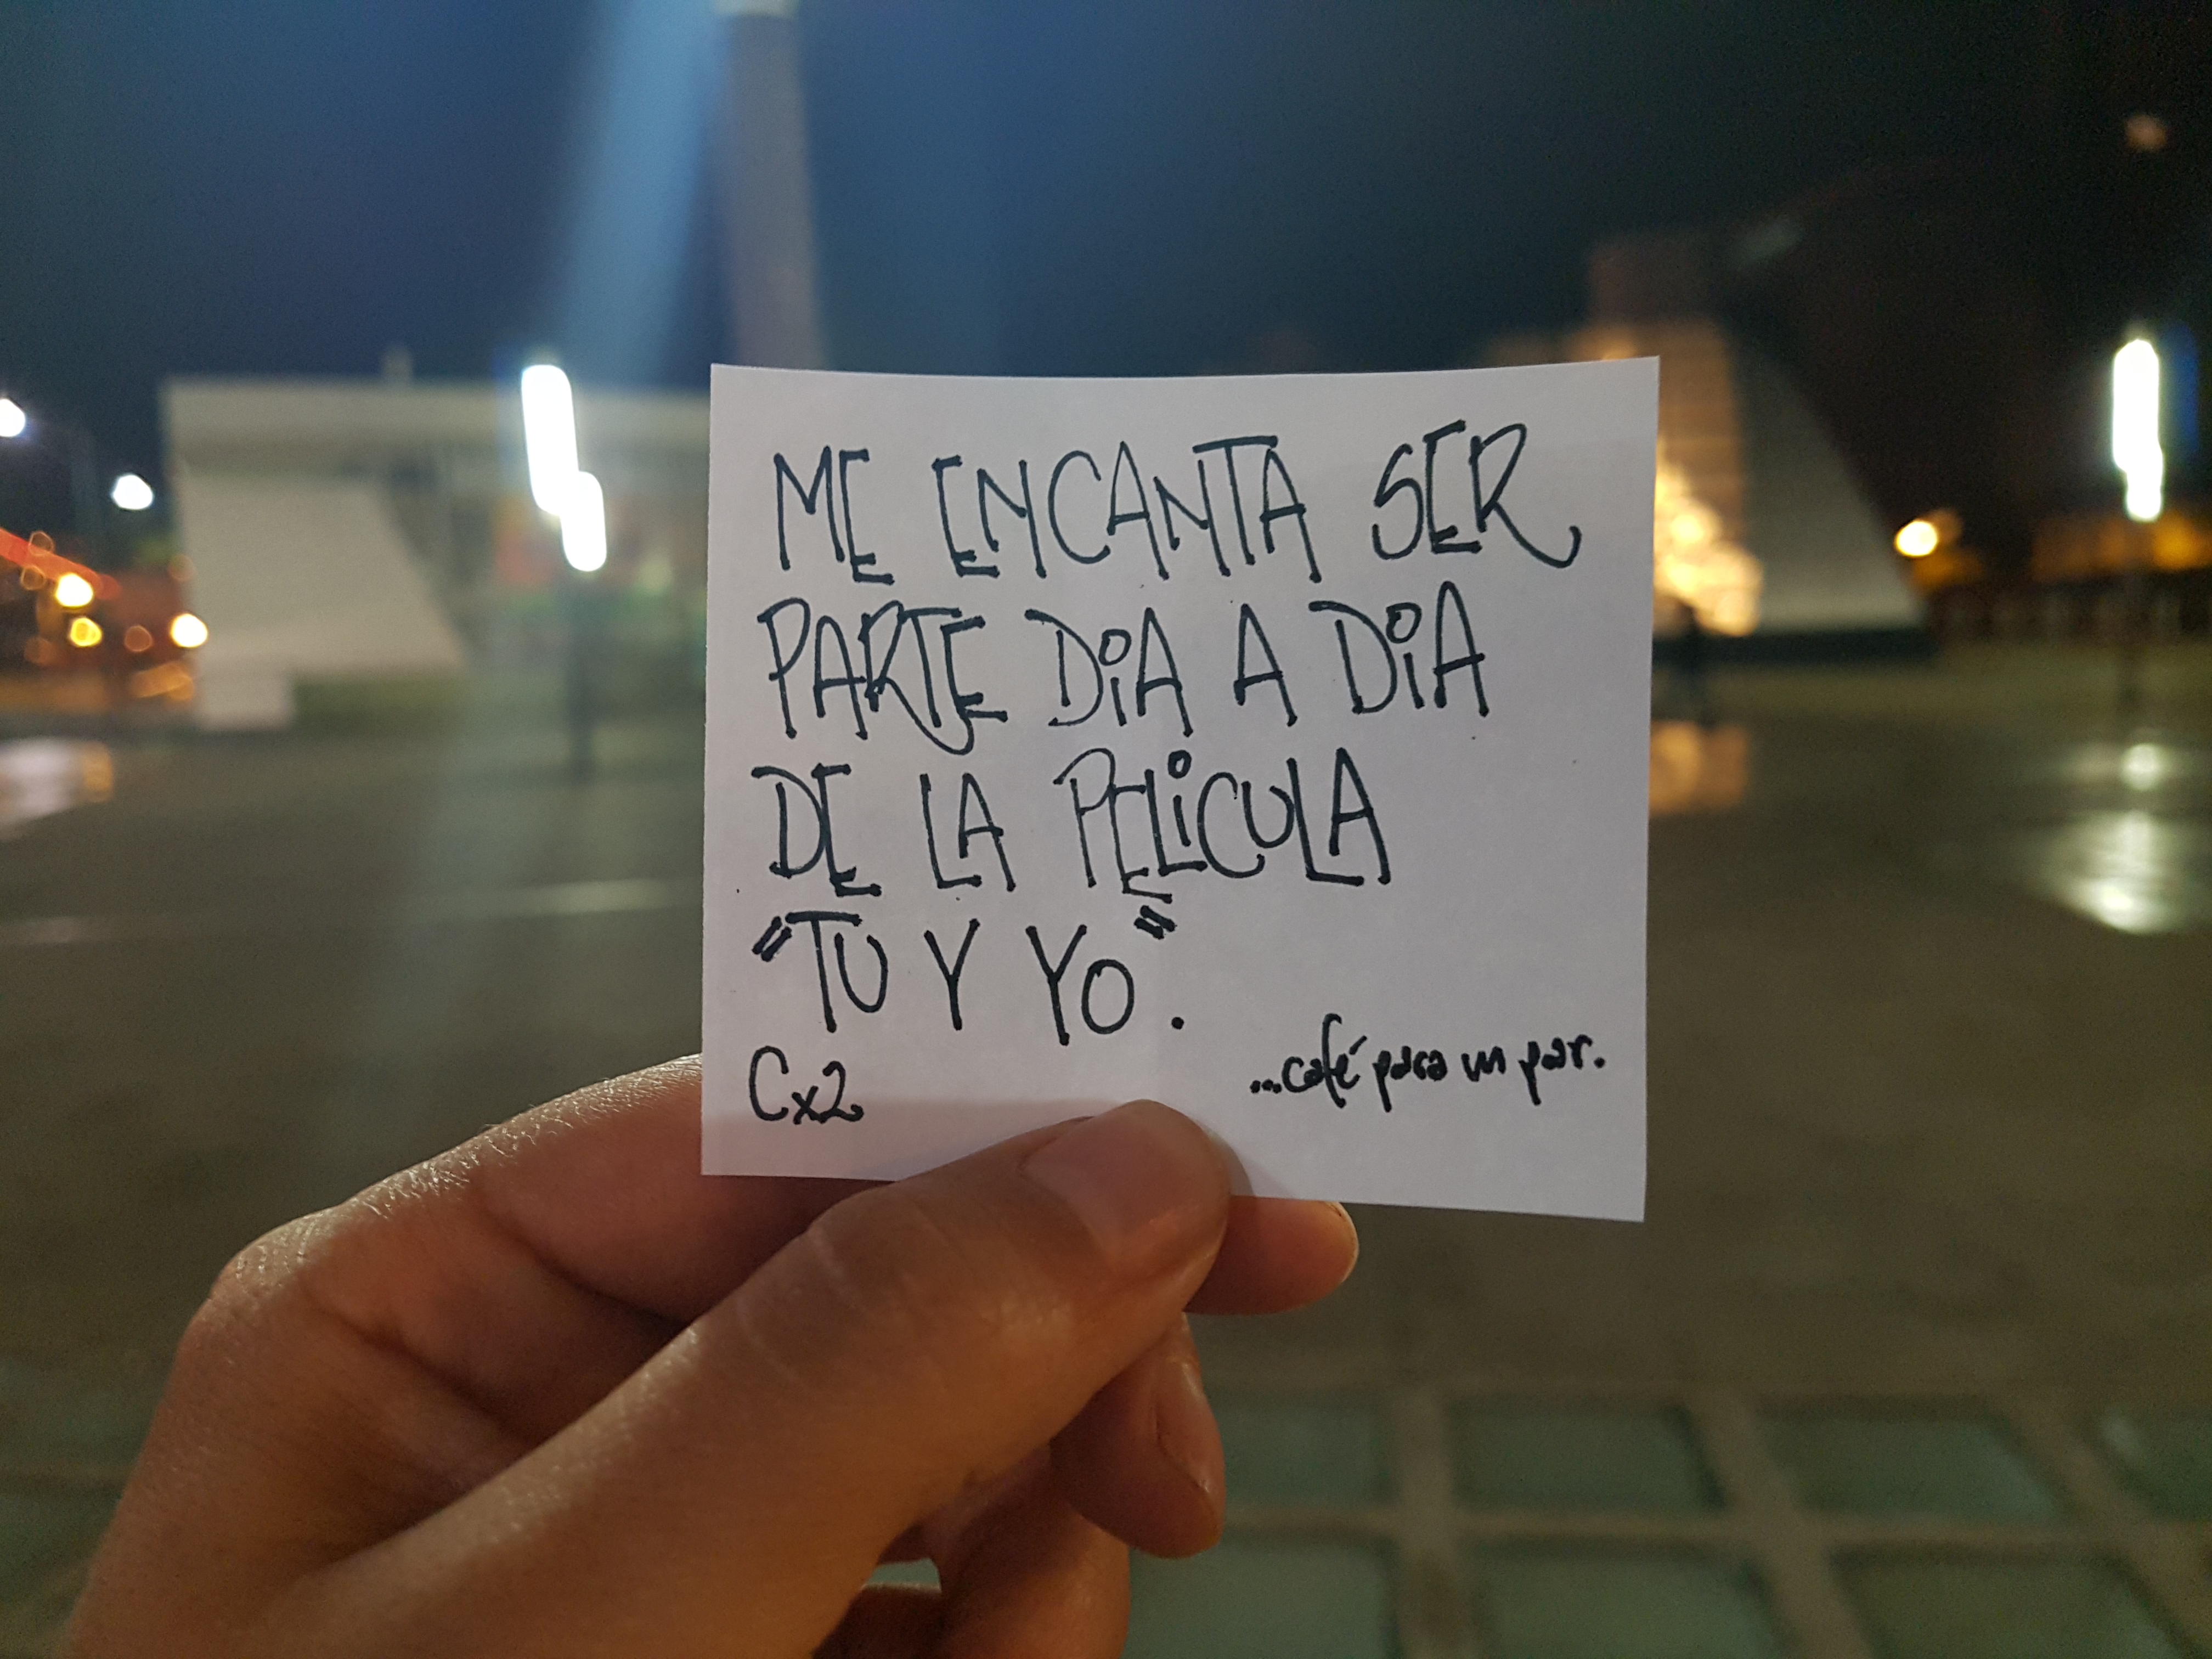 ME ENCANTA SER
PARTE DiA A DiA
DE LA PELiCULA
"TU Y YO".
Cx2
...café para un par.